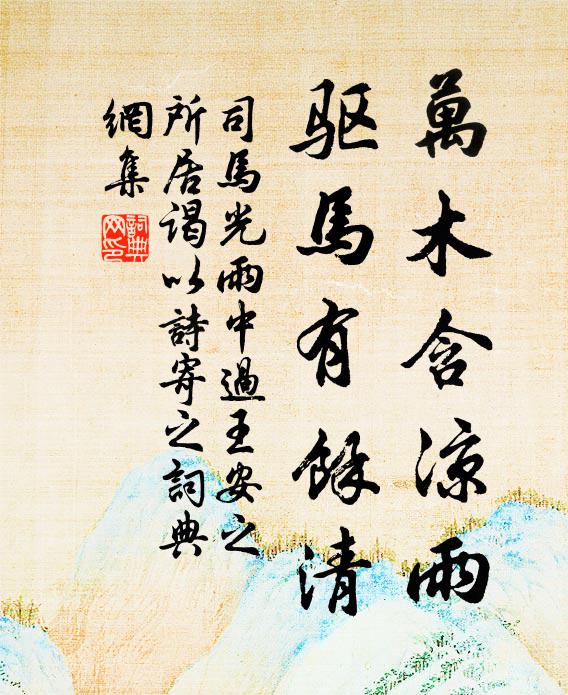 萬木含凉雨
驱馬有餘清
司馬光雨中過王安之
所居謁以詩寄之詞典
網集
詞典網印